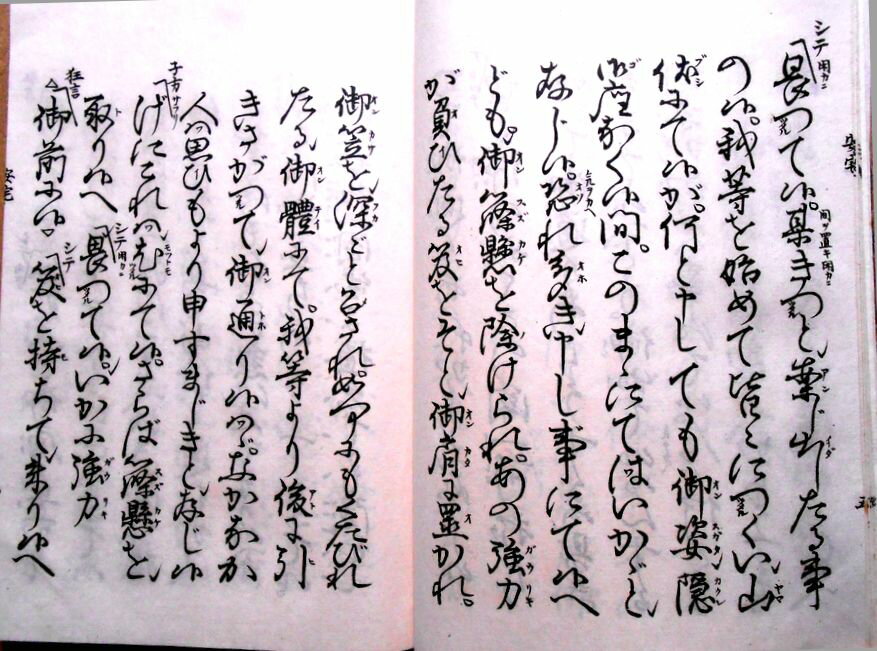 シテ用カニ
畏つて候。某きつと案じ出したる事
の候。我等を始めて皆々につくい山
伏にて候が。何と申しても御姿隠
御座なく候間。このまゝにてはいかゞと
存じ候。恐れ多き申し事にて候へ
ども。御篠懸を除けられ。あの強力
が負ひたる笈をそと御肩に置かれ。
御笠を深〴〵と召され。如何にもくたびれ
たる御體にて。我等より後に引
きさがつて御通り候はゞ。なか〳〵
人は思ひもより申すまじきと存じ候
子方サラリ
げにこれは尤にて候。さらば篠懸を
取り候へ
シテ用カニ
畏つて候。いかに強力
狂言
御前に候。
シテ
笈を持ちて来り候へ
安宅